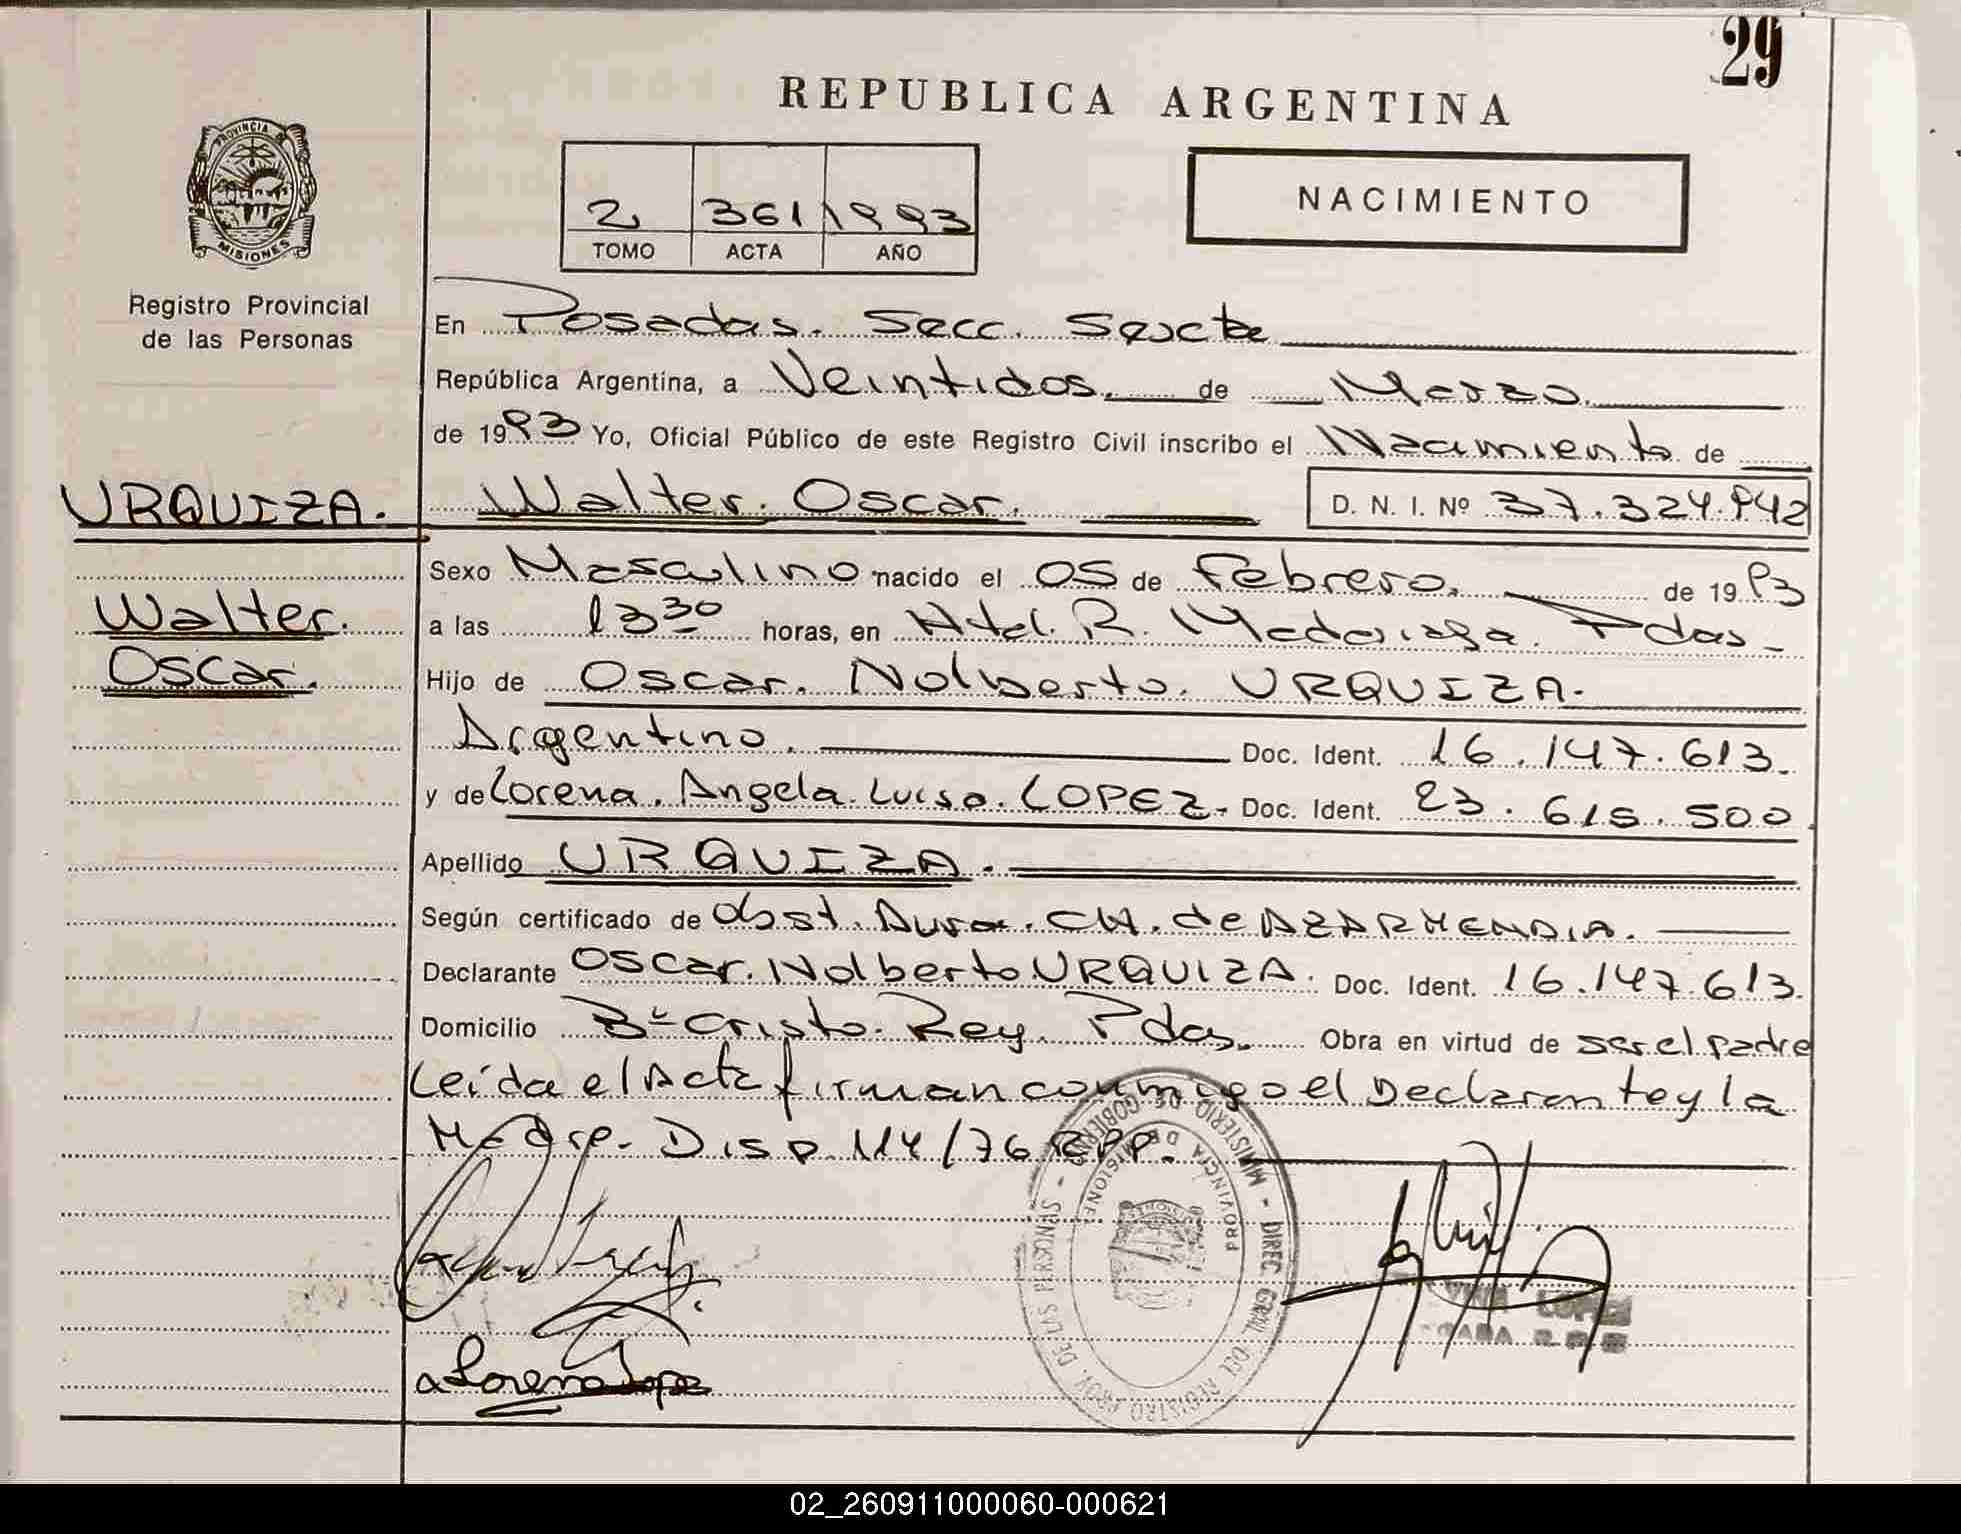 29
REPUBLICA ARGENTINA
PROVINCIA DE
MISIONES
Registro Provincial
de las Personas
2 361 1993
TOMO ACTA AÑO
NACIMIENTO
En Posadas. Secc. Sexta
República Argentina, a Veintidos. de Marzo.
de 1993 Yo, Oficial Público de este Registro Civil inscribo el Nacimiento de
URQUIZA. Walter. Oscar. D. N. I. Nº 37.324.942
Sexo Masculino nacido el 05 de Febrero. de 1993
Walter. a las 13 30 horas, en R. Madariaga. Pdas
Oscar. Hijo de Oscar. Nolberto. URQUIZA.
Argentino. Doc. Ident. 16.147.613.
y de Lorena. Angela. Luisa. LOPEZ. Doc. Ident. 23.615.500
Apellido URQUIZA.
Según certificado de Obst. CH. de AZARMENDIA.
Declarante Oscar. Nolberto URQUIZA. Doc. Ident. 16.147.613.
Domicilio Bº Cristo. Rey. Pdas. Obra en virtud de ser el padre
Leída el Acta firman conmigo el Declarante y la
Madre. Disp. 114/76 RPP.
MINISTERIO DE GOBIERNO - DIREC. GRAL. DEL REGISTRO PROV. DE LAS PERSONAS -
PROVINCIA DE MISIONES
LOPEZ
Lorena Lopez
02_260911000060-000621